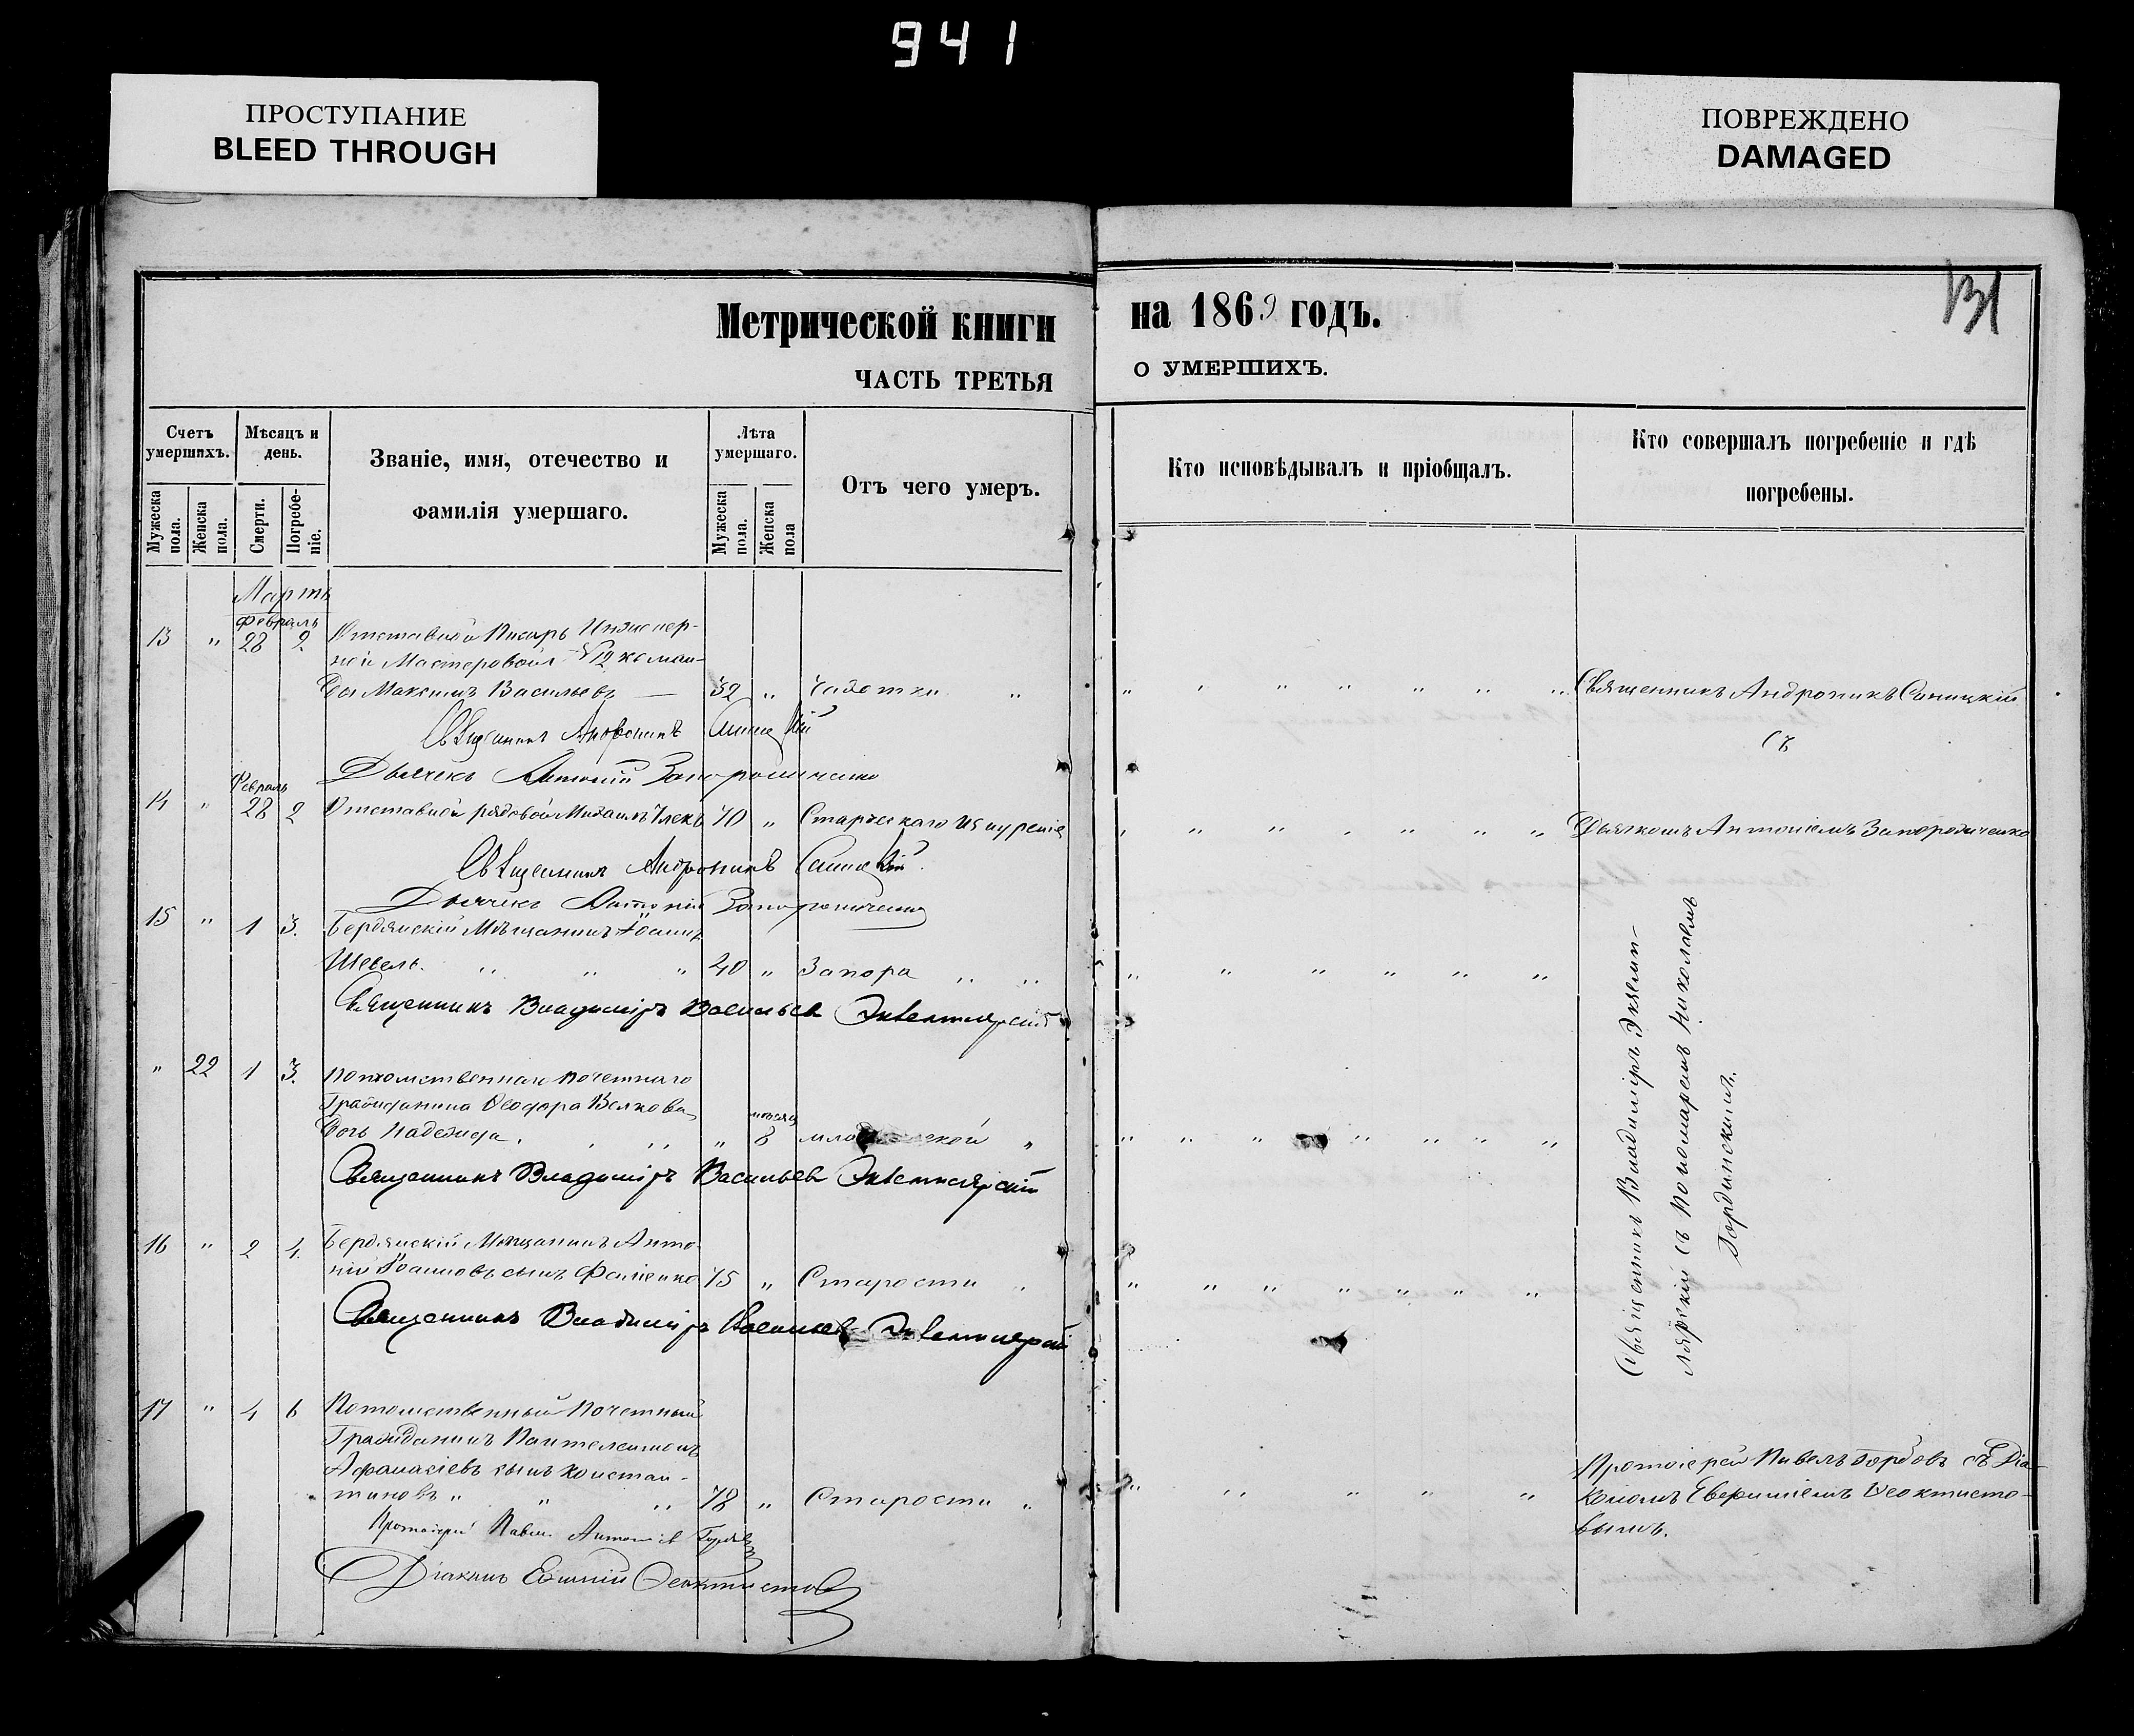 941
ПРОСТУПАНИЕ
BLEED THROUGH
ПОВРЕЖДЕНО
DAMAGED
131
Метрической книги на 1869 годъ.
ЧАСТЬ ТРЕТЬЯ О УМЕРШИХЪ.
Счетъ умершихъ.
Мужеска пола.
Женска пола.
Мѣсяцъ и день.
Смерти.
Погребе-ніе.
Званіе, имя, отечество и
фамилія умершаго.
Лѣта умершаго.
Мужеска пола.
Женска пола
Отъ чего умеръ.
Кто исповѣдывалъ и пріобщалъ.
Кто совершалъ погребеніе и гдѣ
погребены.
Мартъ
Февраль
13 " 28 2 Отставной Писарь Инженер-
ной Мастеровой № 12 коман-
ды Максимъ Васильевъ — 32 " Чахотки " Священникъ Андроникъ Синицкій
Священникъ Андроникъ Синицкій съ
Дьячекъ Антоній Запорожченко
Февраль
14 " 28 2 Отставной рядовой Михаилъ 70 " Старческаго изнуренія Дьячкомъ Антоніемъ Запорожченко
Священникъ Андроникъ Синицкій
Дьячекъ Антоній Запорожченко
15 " 1 3. Бердянскій Мѣщанинъ Іоаннъ
Шевель. " " " 40 " Запора " "
Священникъ Владиміръ Васильевъ Экземплярскій
" 22 1 3. Потомственнаго Почетнаго
Гражданина Ѳеодора Велкова мѣсяц
дочь Надежда " 8 "
Священникъ Владиміръ Васильевъ Экземплярскій
16 " 2 4. Бердянскій Мѣщанинъ Анто-
ній Іоанновъ сынъ 75 " Старости "
Священникъ Владиміръ Васильевъ Экземплярскій
Священникъ Владиміръ Экземп-
лярскій съ Пономаремъ Николаемъ
Гординскимъ.
17 " 4 6 Потомственный Почетный
Гражданинъ Пантелеимонъ
Афанасіевъ сынъ Констан-
тиновъ " " " 78 " Старости "
Протоіерей Павелъ Гербовъ съ Діа-
кономъ Евфиміемъ Ѳеоктисто-
вымъ.
Протоіерей Павелъ
Діаконъ Евфимій Ѳеоктистовъ